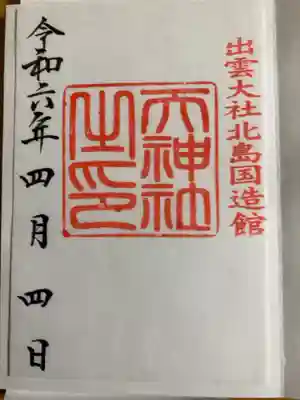 出雲大社北島国造館
天神社
之印
令和六年四月四日